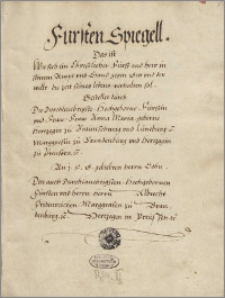 Fürsten Spiegell.
Das ist
Wie sich ein Christlicher Fürst und herr in
seinem Ampt und Stand gegen Gott und der
welt die zeit seines lebens verhalten sol.
Gestellet durch
Die Durchlauchtigste Hochgeborne Fürstin
und Fraw Fraw Anna Maria geborne
Hertzogin zu Braunschweig und Lüneburg
Marggräffin zu Brandenburg und Hertzogin
zu Preussen
An J. F. G. geliebten herrn Sohn.
Den auch Durchlauchtigsten Hochgebornen
Fürsten und herrn herrn Albrecht
Friederichen Marggrafen zu Bran-
denburg Hertzogen in Preussen